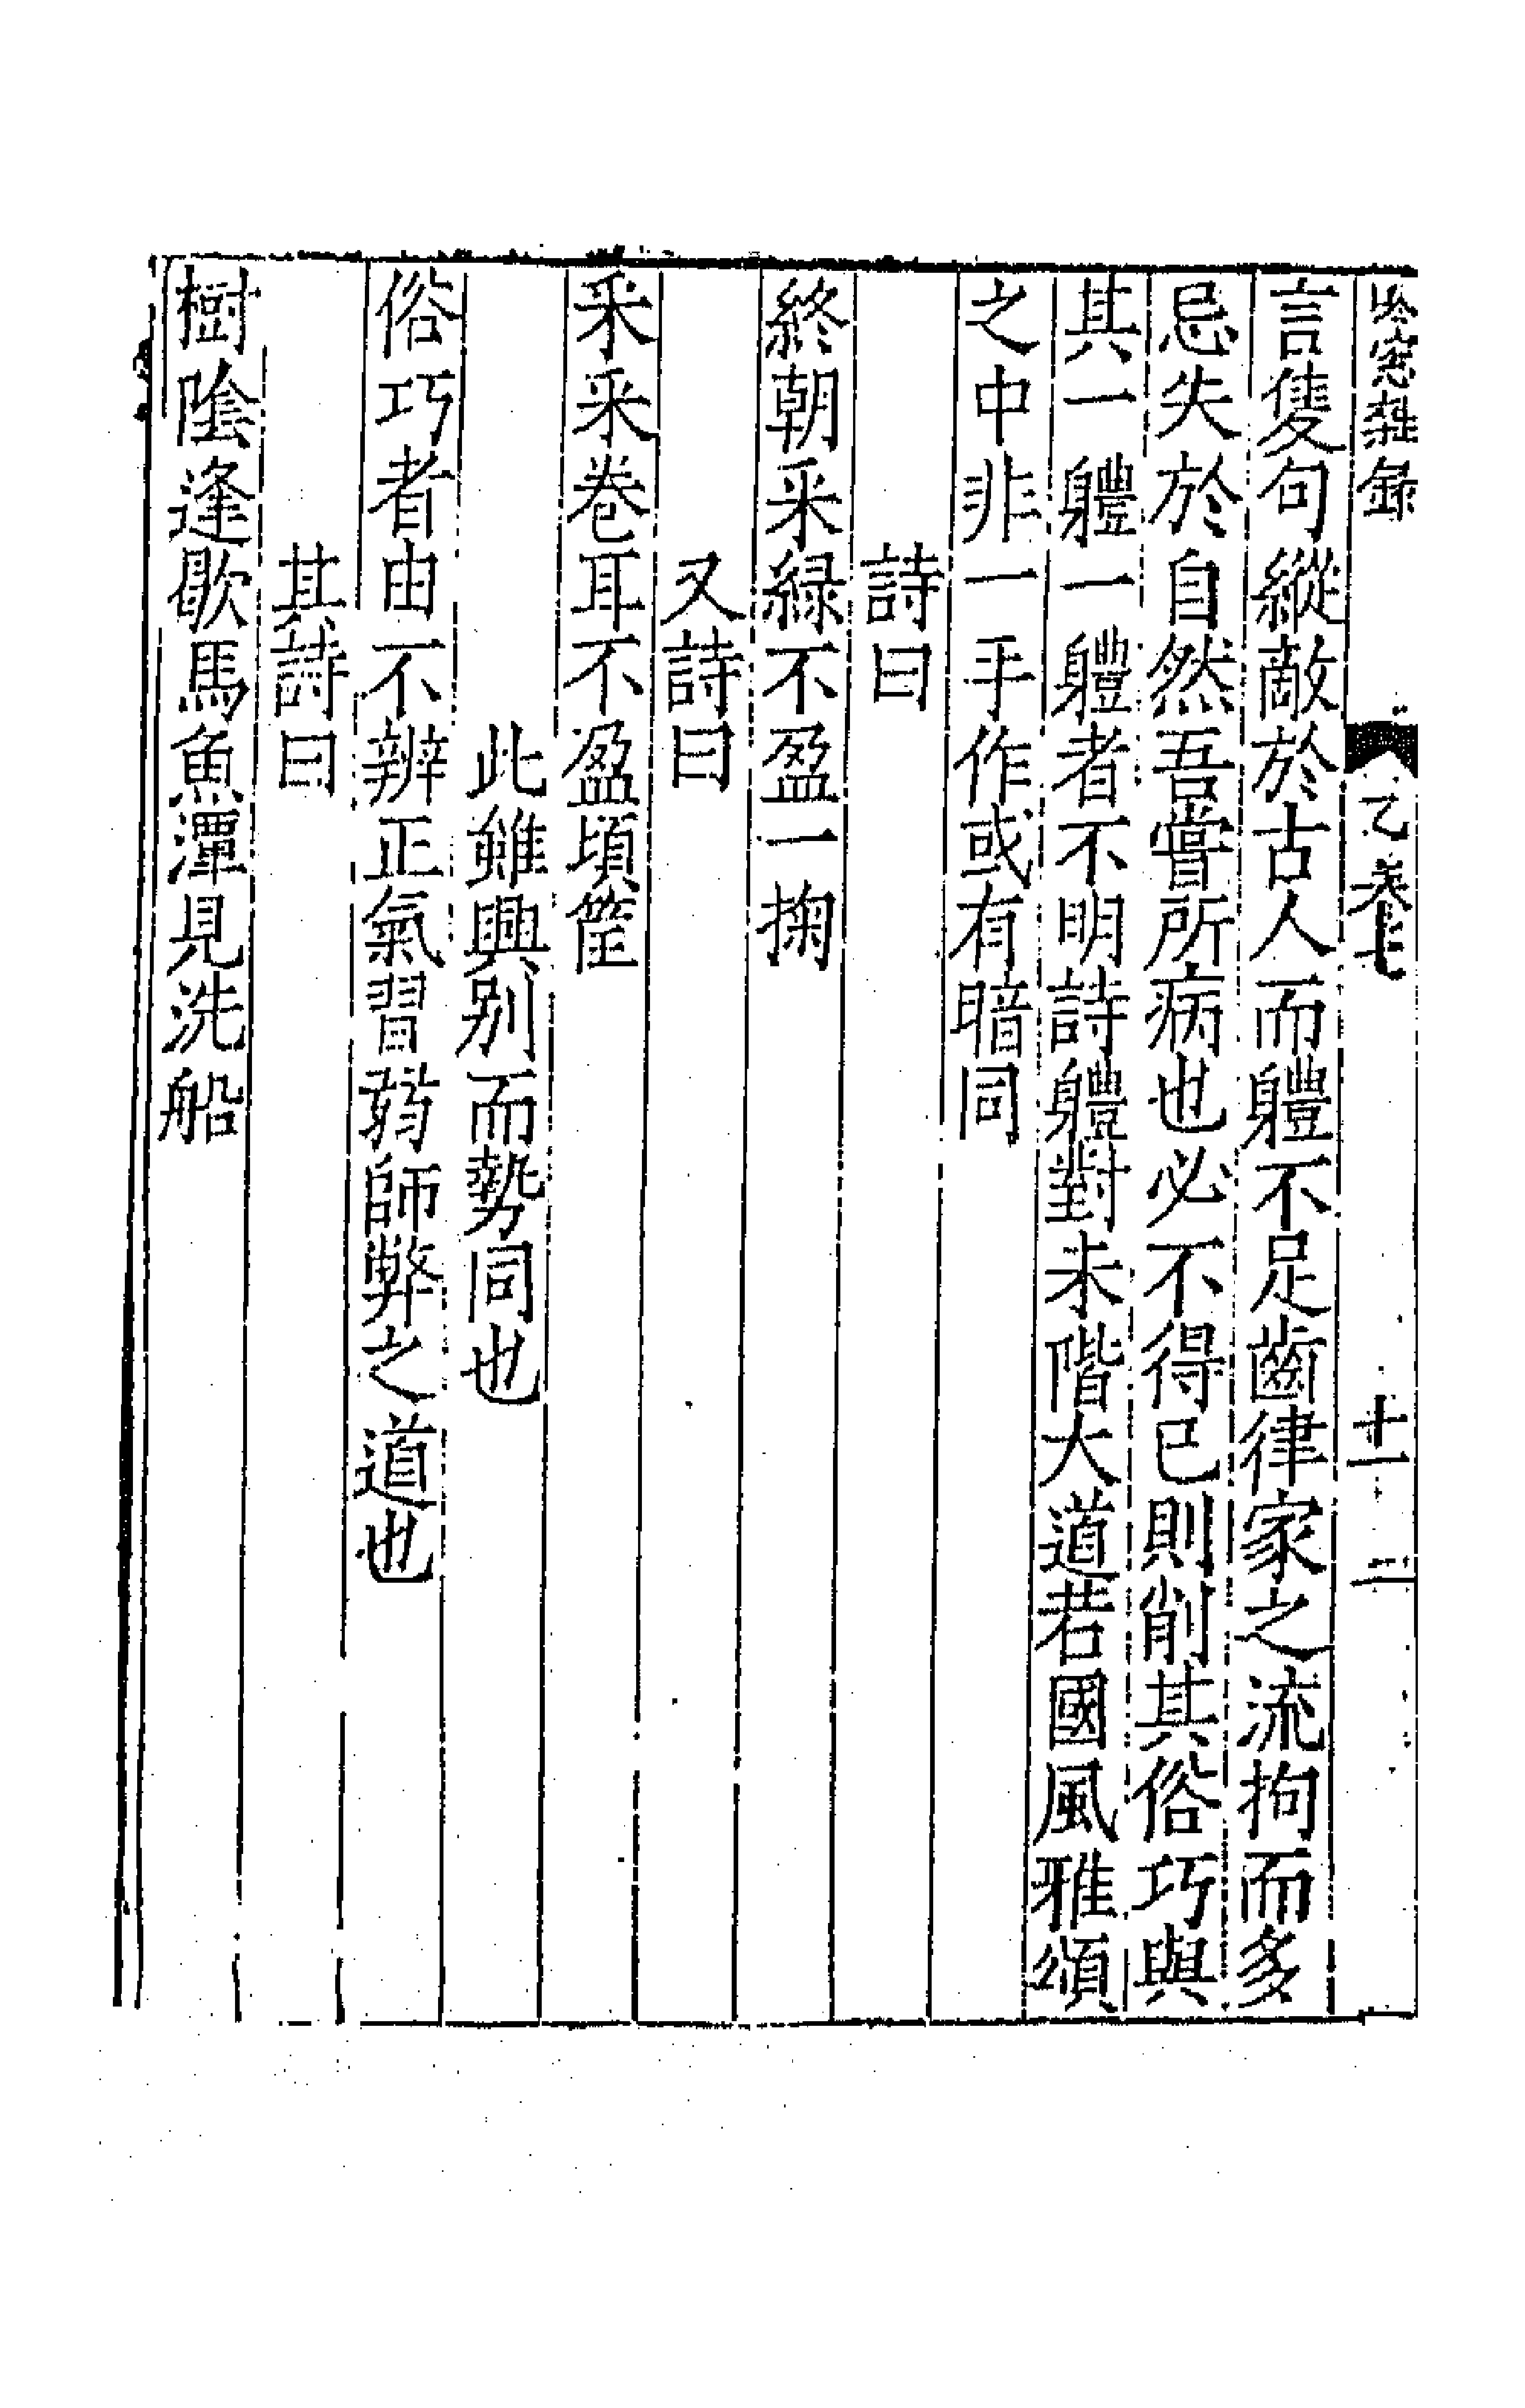 吟窓雜録 乙卷七 十一 二
言隻句縱敵於古人而軆不足齒律家之流拘而多
忌失於自然吾嘗所病也必不得已則削其俗巧與
其一軆一軆者不明詩軆對未階大道若國風雅頌
之中非一手作或有暗同
詩曰
終朝采緑不盈一掬
又詩曰
采采卷耳不盈頃筐
此雖興别而勢同也
俗巧者由不辨正氣習弱師弊之道也
其詩曰
樹隂逢歇馬魚潭見洗船